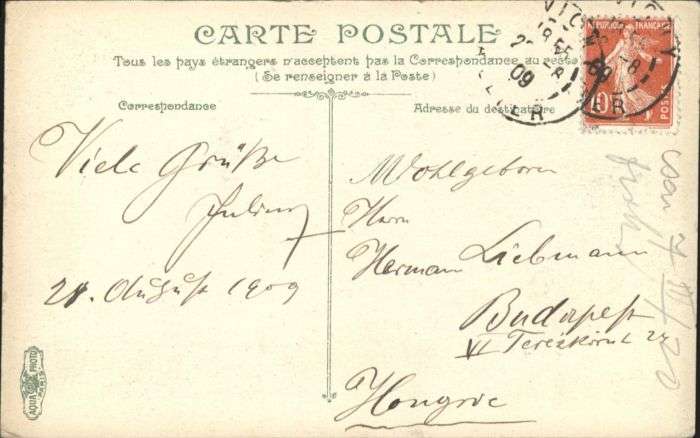 CARTE POSTALE
Tous les pays étrangers n'acceptent pas la Correspondance au recto
(Se renseigner à la Poste)
Correspondance
Adresse du destinataire
Viele Grüße
Julius
28. August 1909
Wohlgeboren
Herrn
Herman Liebmann
Budapest
VI Terézkörut 24
Hongrie
REPUBLIQUE FRANÇAISE
10
POSTES
VICHY
09
ALLIER
AQUA PHOTO
PARIS